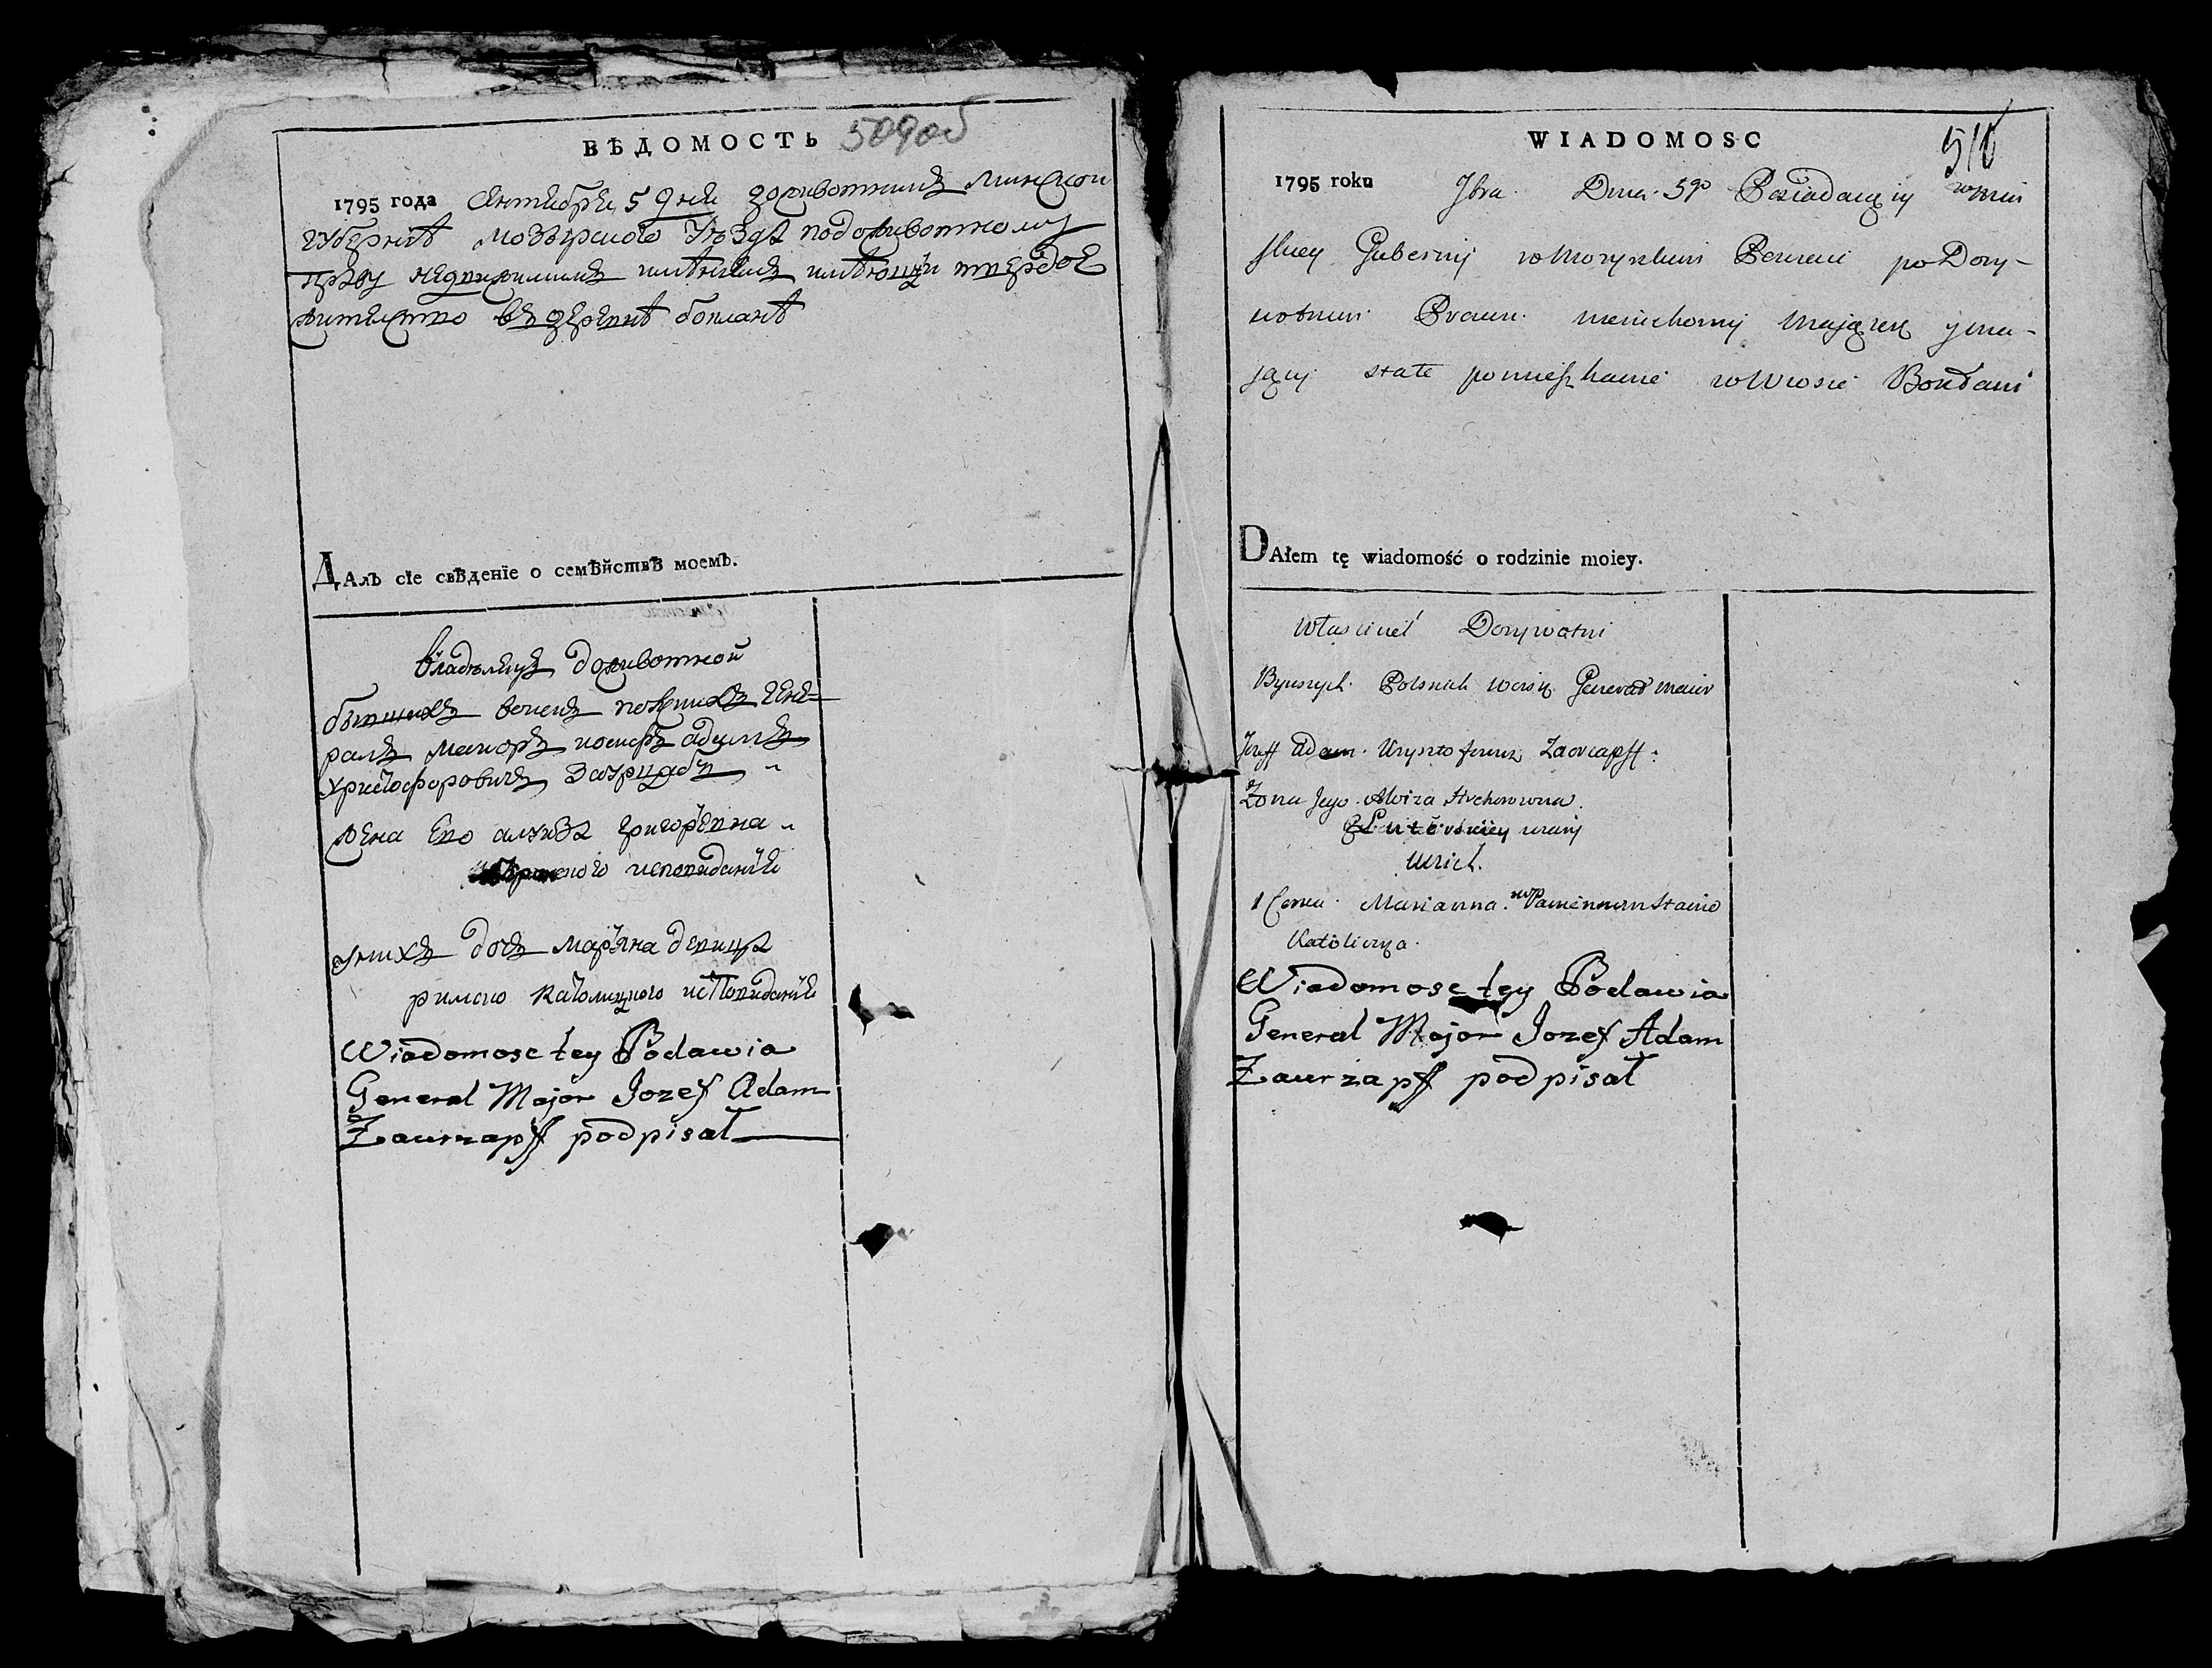 ВѢДОМОСТЬ 509об
1795 года Сентебря 5 дня доживотнимъ Минской
губернѣ Мозырского уѣзда подоживотному
праву недвижимимъ имѣниемъ имѣющи твердое
жителство въ деревнѣ
Далъ сіе свѣденіе о семѣйствѣ моемъ.
владѣлецъ доживотной
бывшихъ войскъ полскихъ гене-
ралъ маиоръ иосифъ адамъ
христофоровичъ
жена его алоиза григоревна
исповиданія
унихъ дочъ марiяна девица
римско католицкого исповиданія
Wiadomosc tey Podawia
General Major Jozef Adam
Zaurzapff podpisał
WIADOMOSC 510
1795 roku 7bra Dnia 5go Posiadaiący w Min
skiey Gubernij w Mozyrskim Powieci po Dozy-
wotnim Prawu nieruchomy Maiątek y ma-
jący stałe pomieszkanie w Wiosce
DAłem tę wiadomość o rodzinie moiey.
Własciciel Dozywotni
Bywszych Polskich woysk Generał Maior
Jozeff Adam Krysztofowicz Zaurcapff
Żona Jego Aloiza
wiary
Unich
1 Corka Marianna w Panienskim Stanie
Katoliczka
Wiadomosc tey Podawia
General Major Jozef Adam
Zaurzapff podpisał